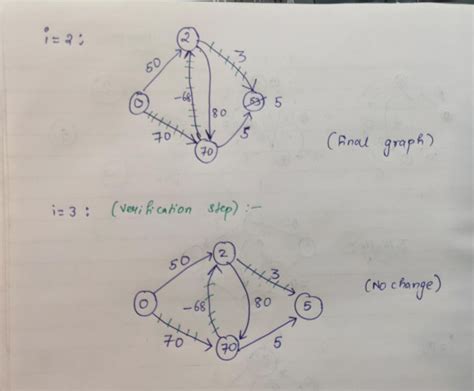 i=2:
2
50
3
0
-68
80
5
70
70
5
(Final graph)
i=3: (verification step) :-
2
50
3
0
-68
80
5
(No change)
70
70
5